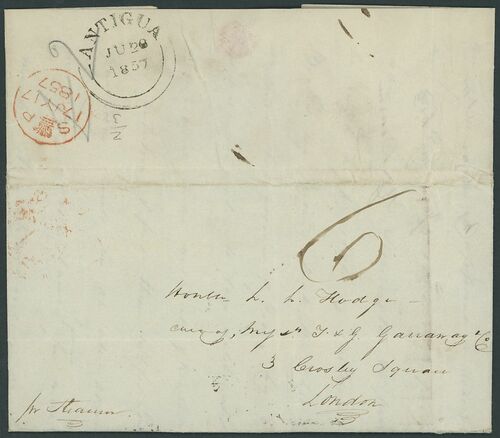 ANTIGUA
JU 29
1857
17 JY 17
1857
6
Honble L. L. Hodge
care of, Messrs T & G Garraway & Co
3 Crosby Square
London
pr Steamer